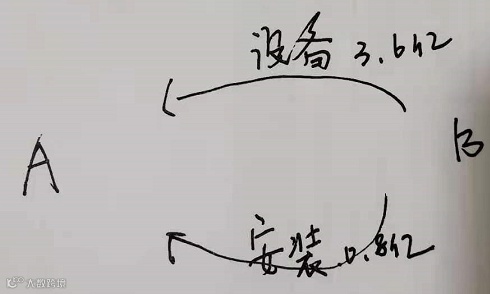 设备 3.6亿
A
B
安装 0.8亿
大数跨境